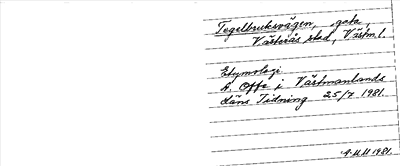 Tegelbruksvägen, gata,
Västerås stad, Västm l.
Etymologi
A. Offe i Västmanlands
Läns Tidning 25/7 1981.
1981.